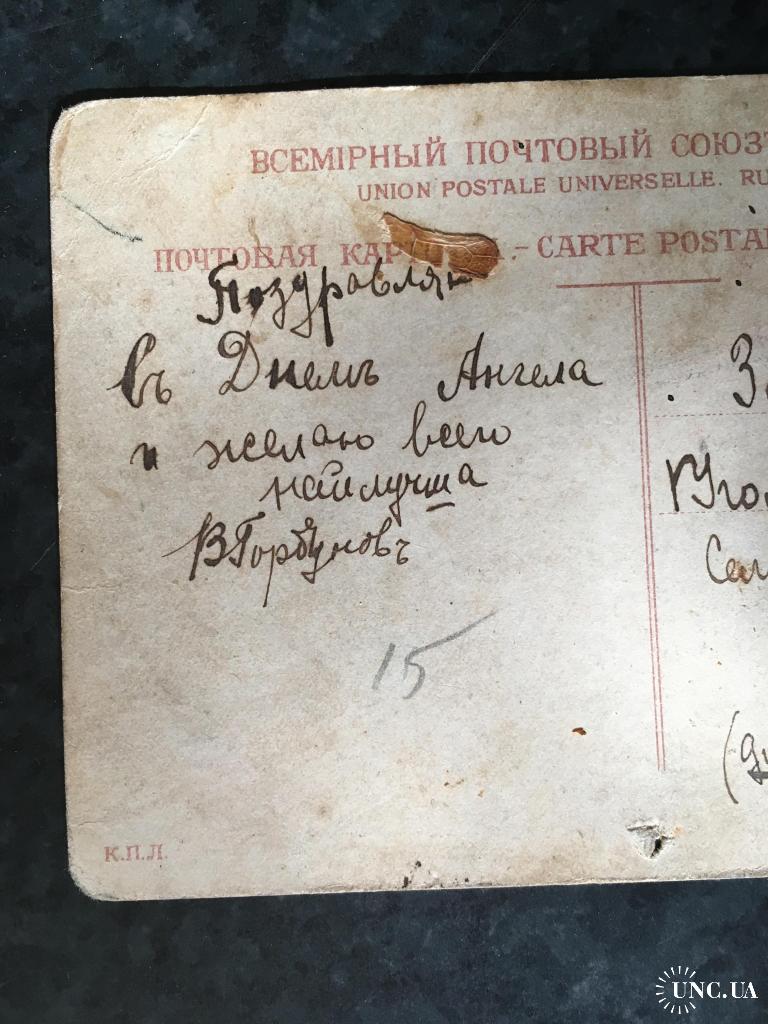 ВСЕМІРНЫЙ ПОЧТОВЫЙ СОЮЗ
UNION POSTALE UNIVERSELLE. RU
ПОЧТОВАЯ КАР .- CARTE POSTAL
Поздравляю
въ Днемъ Ангела
и желаю всего
наилучша
ВГорбуновъ
Угол
Сел
15
К.П.Л.
UNC.UA